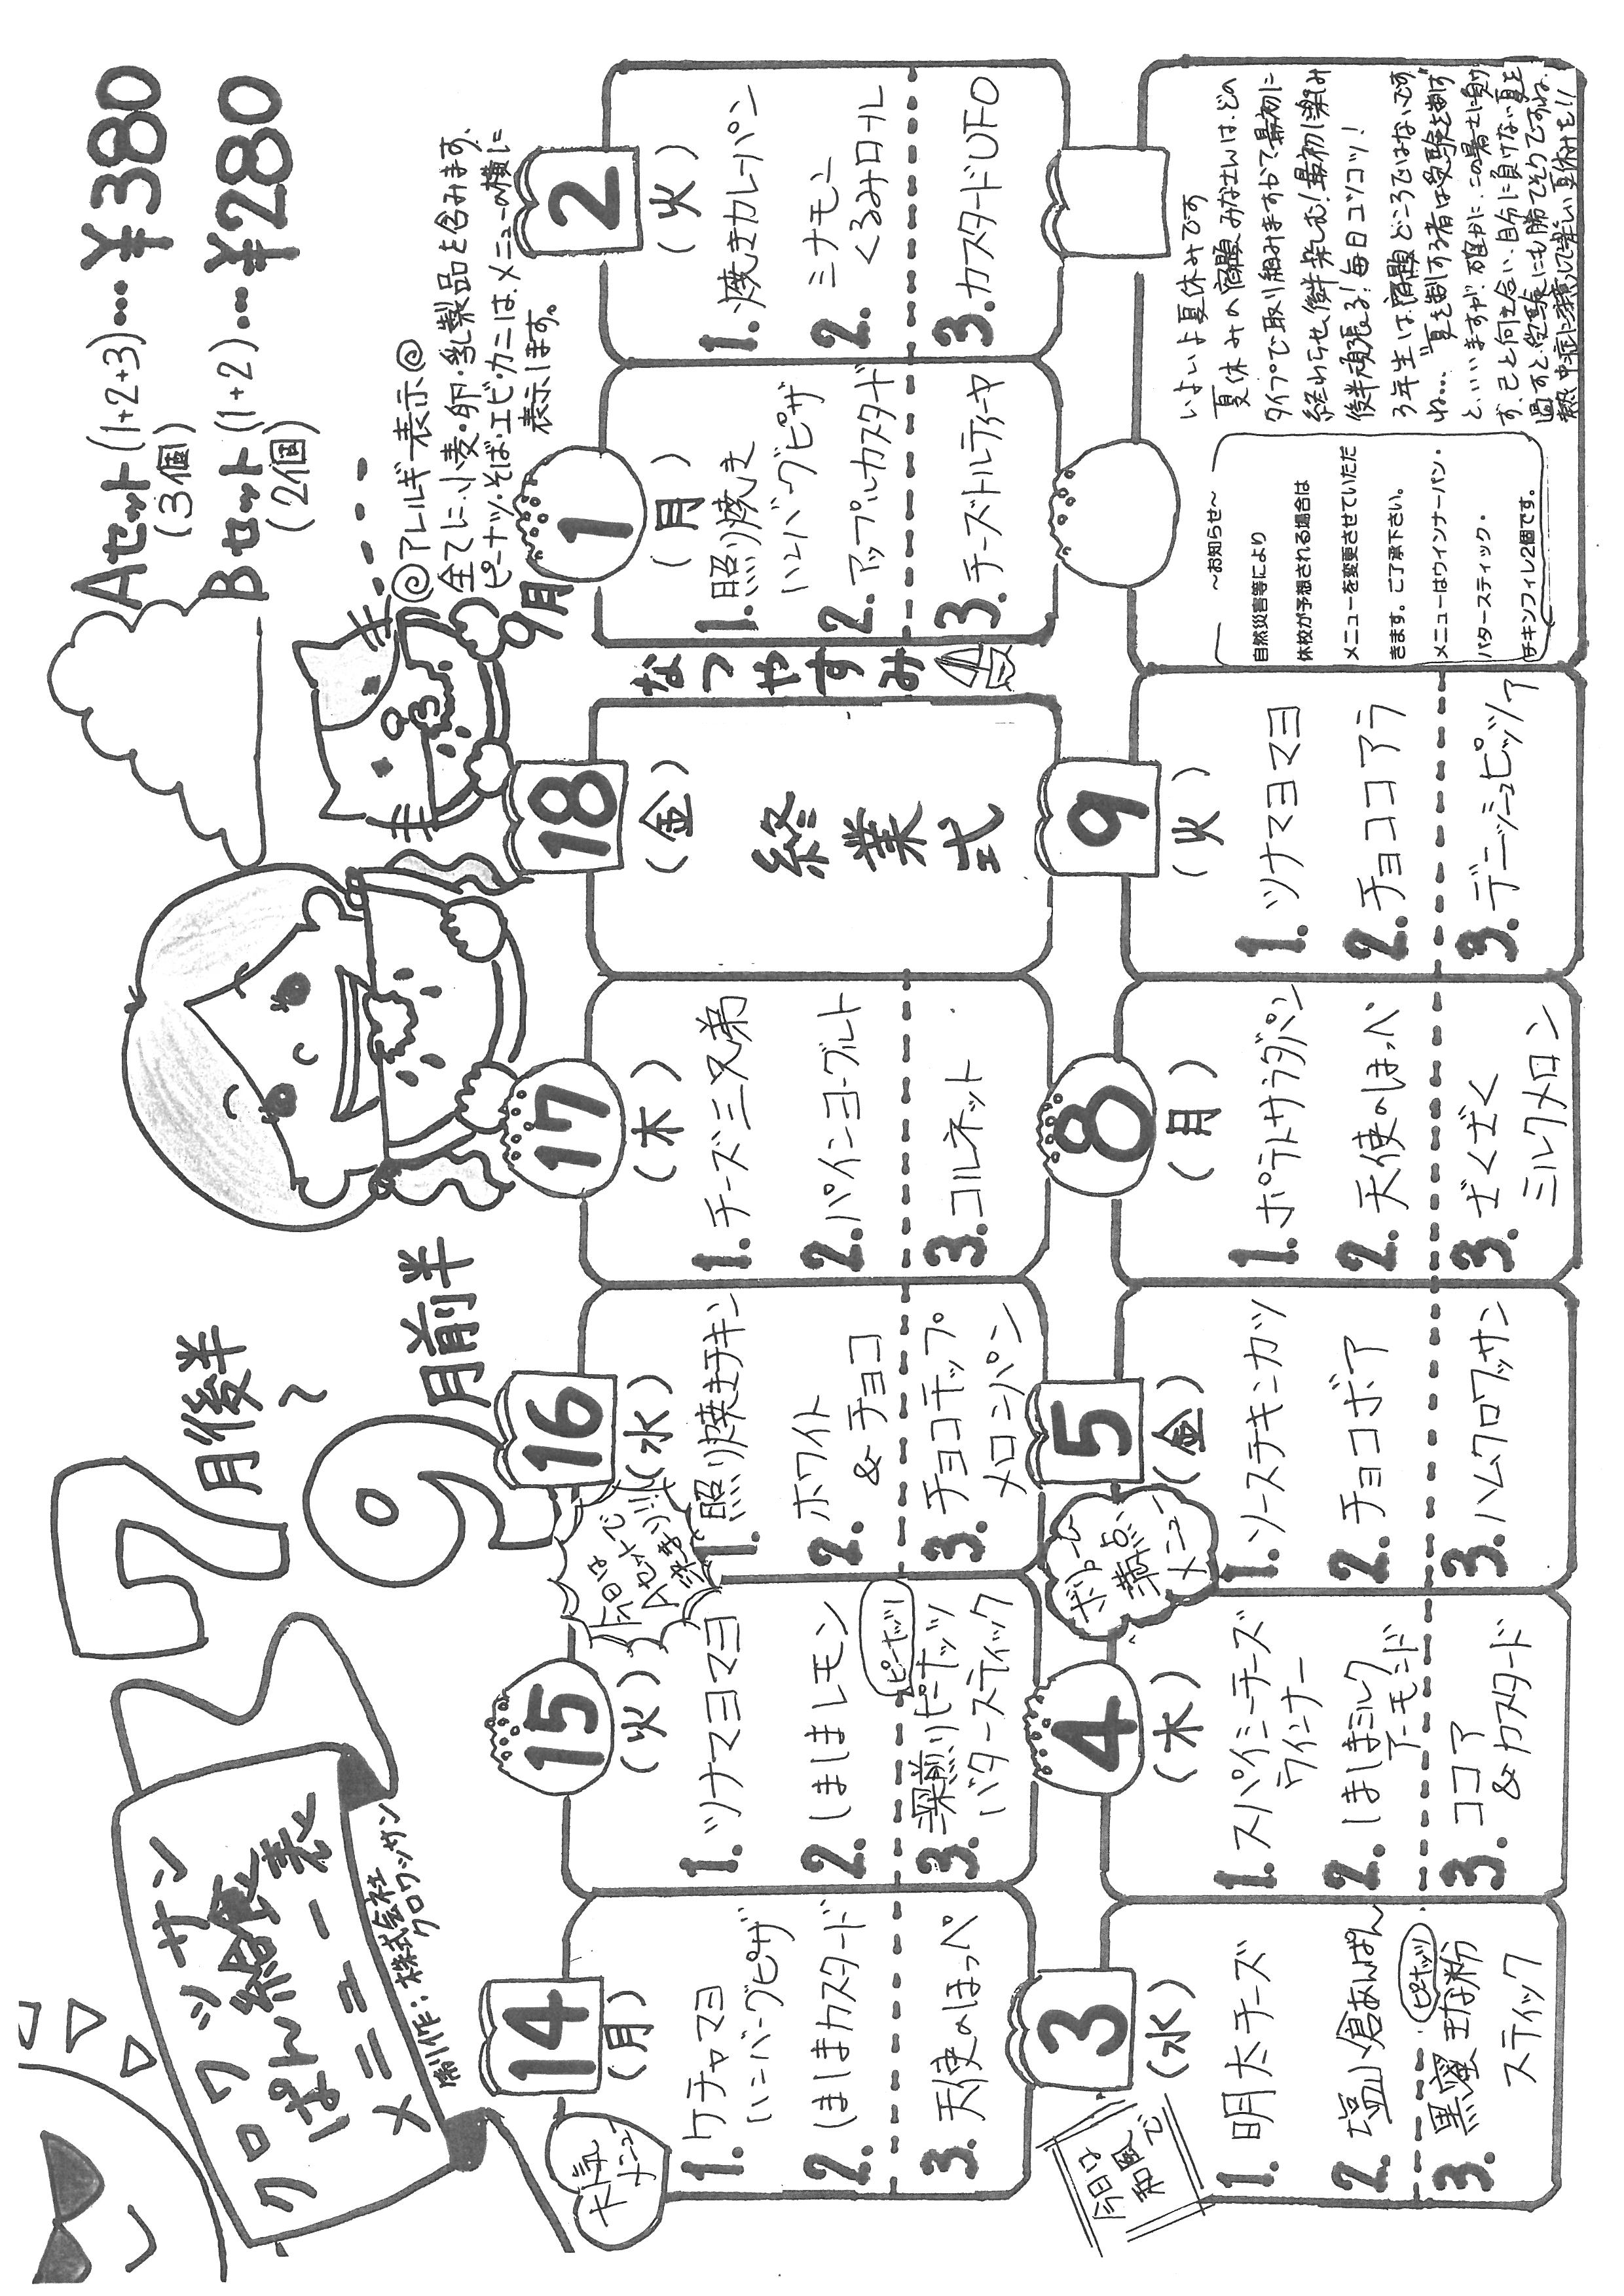 クロワッサン
ぱん給食
メニュー表
制作：株式会社
クロワッサン
7月後半
～
9月前半
Aセット(1+2+3)…¥380
(3個)
Bセット(1+2)…¥280
(2個)
◎アレルギー表示◎
全てに、小麦・卵・乳製品を含みます。
ピーナッツ・そば・エビ・カニは、メニューの横に
表示します。
大人気
メニュー
14
(月)
1.ケチャマヨ
ハンバーグピザ
2.しましまカスタード
3.天使のほっぺ
15
(火)
1.ツナマヨマヨ
2.しましまレモン
ピーナッツ
3.深煎りピーナッツ
バタースティック
今日は
Aセットで
決まり!!
16
(水)
1.照り焼きチキン
2.ホワイト
&チョコ
3.チョコチップ
メロンパン
17
(木)
1.チーズ三兄弟
2.パインヨーグルト
3.コルネット
18
(金)
終業式
なつやすみ
9月
1
(月)
1.照り焼き
ハンバーグピザ
2.アップルカスタード
3.チーズトルティーヤ
2
(火)
1.焼きカレーパン
2.シナモン
くるみロール
3.カスタードUFO
今日は
和風で
3
(水)
1.明太チーズ
2.塩小倉あんぱん
ピーナッツ
3.黒蜜きな粉
スティック
4
(木)
1.スパイシーチーズ
ウインナー
2.しましまミルク
アーモンド
3.ココア
&カスタード
ボリューム
満点
メニュー
5
(金)
1.ソースチキンカツ
2.チョコボア
3.ハムクロワッサン
8
(月)
1.ポテトサラダパン
2.天使のほっぺ
3.ざくざく
ミルクメロン
9
(火)
1.ツナマヨ
2.チョココアラ
3.デニッシュピッツァ
～お知らせ～
自然災害等により
休校が予想される場合は
メニューを変更させていただ
きます。ご了承下さい。
メニューはウインナーパン・
バタースティック・
チキンフィレ2個です。
いよいよ夏休みです
夏休みの宿題みなさんは、どの
タイプで取り組みますか？最初に
終わらせ、後半楽しむ！最初に楽しみ
後半頑張る！毎日コツコツ！
3年生は、宿題どころではないです
ね…"夏を制する者は受験を制す"
といいますが、確かに、この暑さに負け
ず、己と向き合い、自分に負けない夏を
過すと、受験にも勝てそうですね。
熱中症に注意して楽しい夏休みを!!